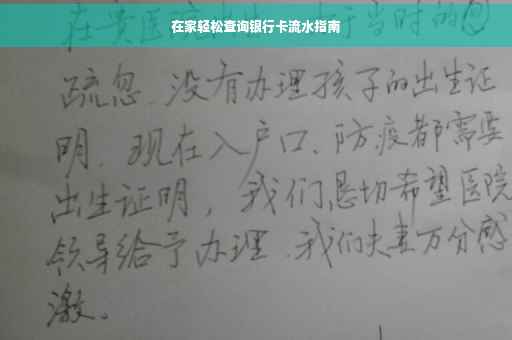 在家轻松查询银行卡流水指南
在贵医 于当时的
疏忽、没有办理孩子的出生证
明、现在入户口、防疫都需要
出生证明，我们恳切希望医院
领导给予办理、我们夫妻万分感
激。